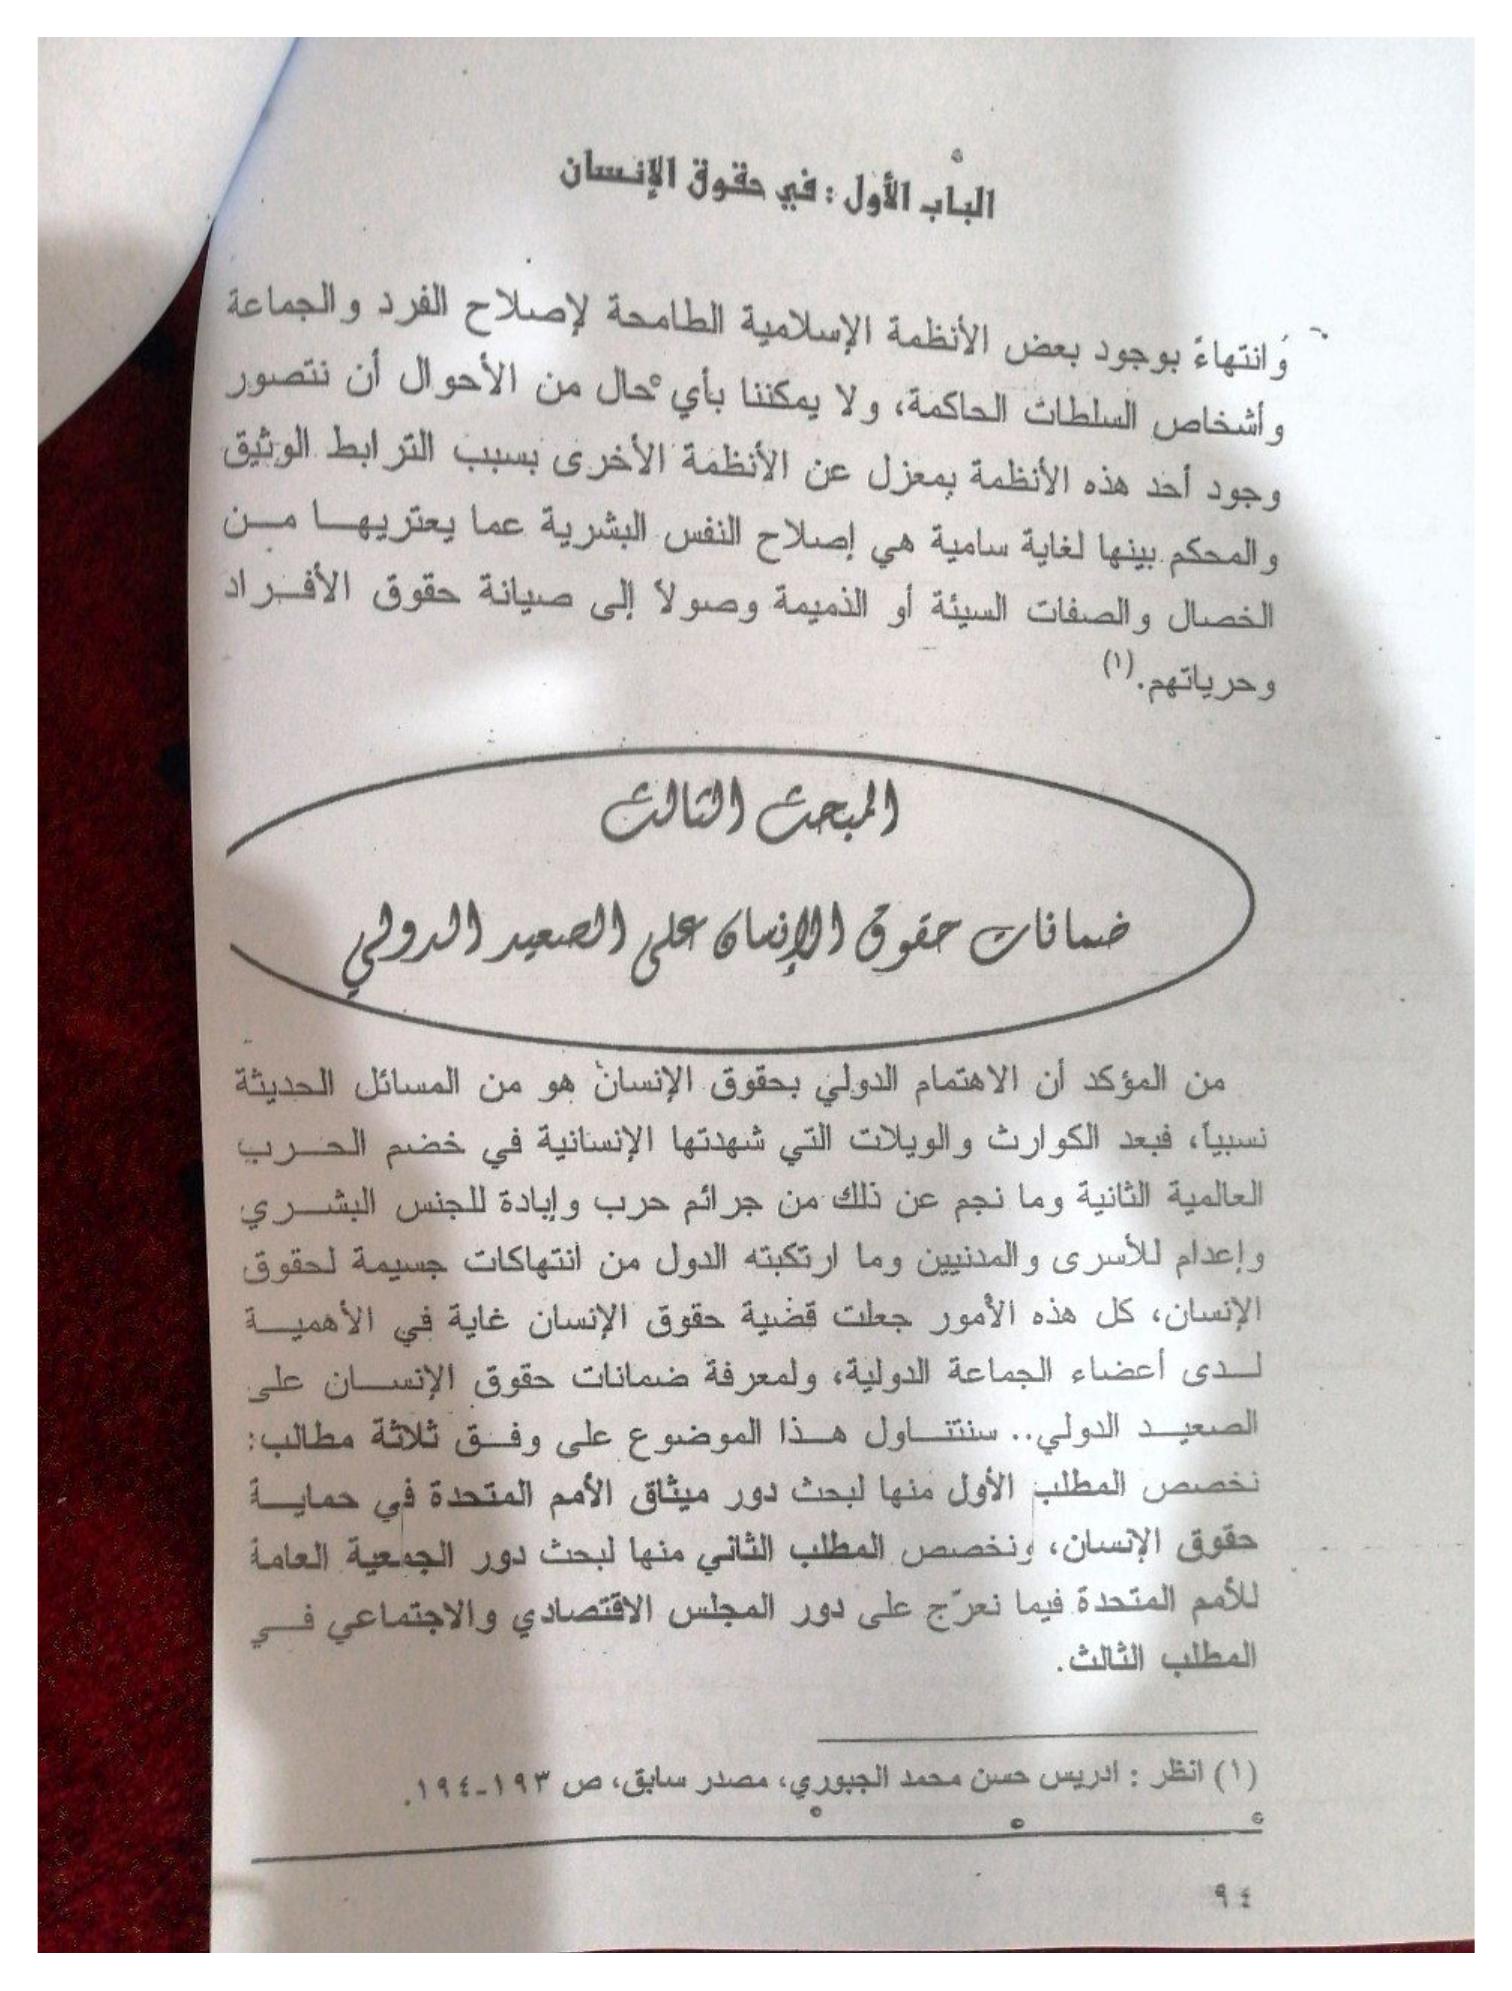 الباب الأول : في حقوق الإنسان
وانتهاءً بوجود بعض الأنظمة الإسلامية الطامحة لإصلاح الفرد والجماعة
وأشخاص السلطات الحاكمة، ولا يمكننا بأي حال من الأحوال أن نتصور
وجود أحد هذه الأنظمة بمعزل عن الأنظمة الأخرى بسبب الترابط الوثيق
والمحكم بينها لغاية سامية هي إصلاح النفس البشرية عما يعتريها من
الخصال والصفات السيئة أو الذميمة وصولاً إلى صيانة حقوق الأفراد
وحرياتهم.(١)
المبحث الثالث
ضمانات حقوق الإنسان على الصعيد الدولي
من المؤكد أن الاهتمام الدولي بحقوق الإنسان هو من المسائل الحديثة
نسبياً، فبعد الكوارث والويلات التي شهدتها الإنسانية في خضم الحرب
العالمية الثانية وما نجم عن ذلك من جرائم حرب وإبادة للجنس البشري
وإعدام للأسرى والمدنيين وما ارتكبته الدول من انتهاكات جسيمة لحقوق
الإنسان، كل هذه الأمور جعلت قضية حقوق الإنسان غاية في الأهمية
لدى أعضاء الجماعة الدولية، ولمعرفة ضمانات حقوق الإنسان على
الصعيد الدولي.. سنتناول هذا الموضوع على وفق ثلاثة مطالب:
نخصص المطلب الأول منها لبحث دور ميثاق الأمم المتحدة في حماية
حقوق الإنسان، ونخصص المطلب الثاني منها لبحث دور الجمعية العامة
للأمم المتحدة فيما نعرّج على دور المجلس الاقتصادي والاجتماعي في
المطلب الثالث.
(١) انظر : ادريس حسن محمد الجبوري، مصدر سابق، ص ١٩٣-١٩٤.
٩٤